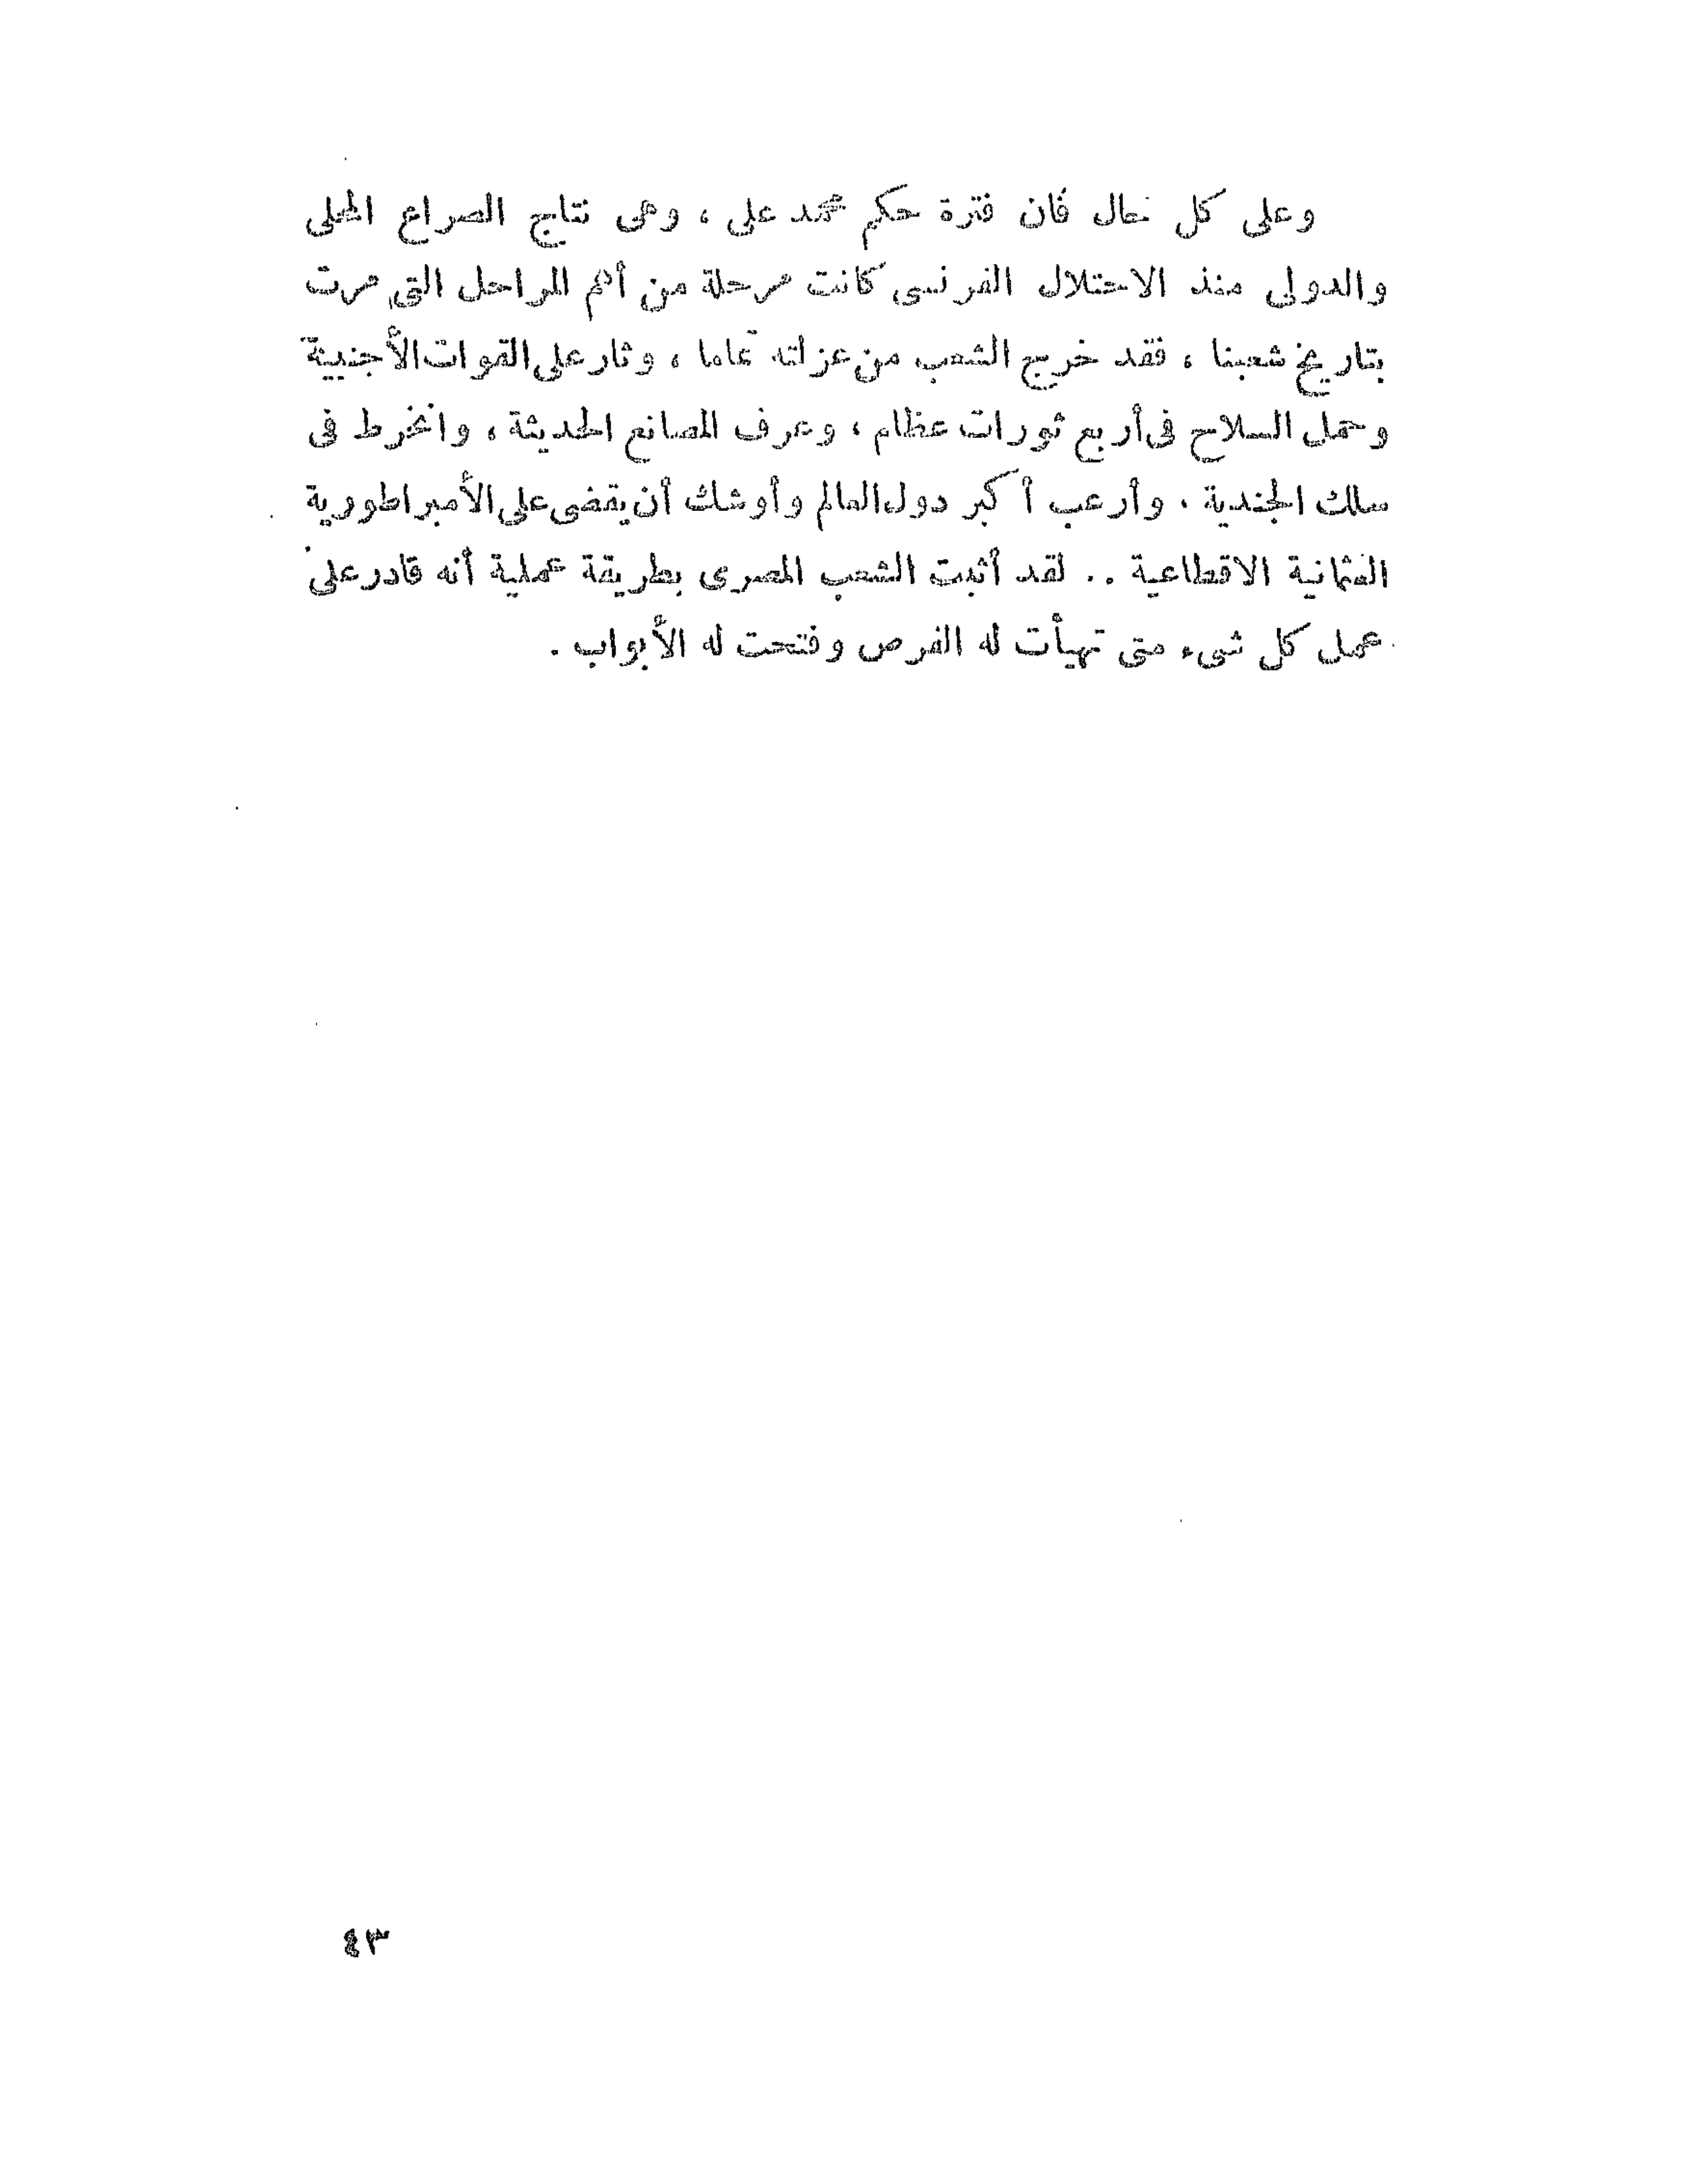 وعلى كل حال فان فترة حكم محمد على ، وهى نتاج الصراع المحلى
والدولى منذ الاحتلال الفرنسى كانت مرحلة من أهم المراحل التى مرت
بتاريخ شعبنا ، فقد خرج الشعب من عزلته تماما ، وثار على القوات الأجنبية
وحمل السلاح فى أربع ثورات عظام ، وعرف المصانع الحديثة ، وانخرط فى
سلك الجندية . وأرعب أكبر دول العالم وأوشك أن يقضى على الأمبراطورية
العثمانية الاقطاعية .. لقد أثبت الشعب المصرى بطريقة عملية أنه قادر على
عمل كل شىء متى تهيأت له الفرص وفتحت له الأبواب .
٤٣